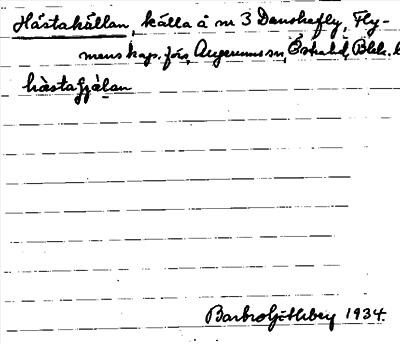 Hästakällan, källa å nr 3 Danskefly, Fly-
mens kap. förs, Augerums sn, Östra hd, Blek. l
hästaȷälan
Barbro Götlberg 1934.